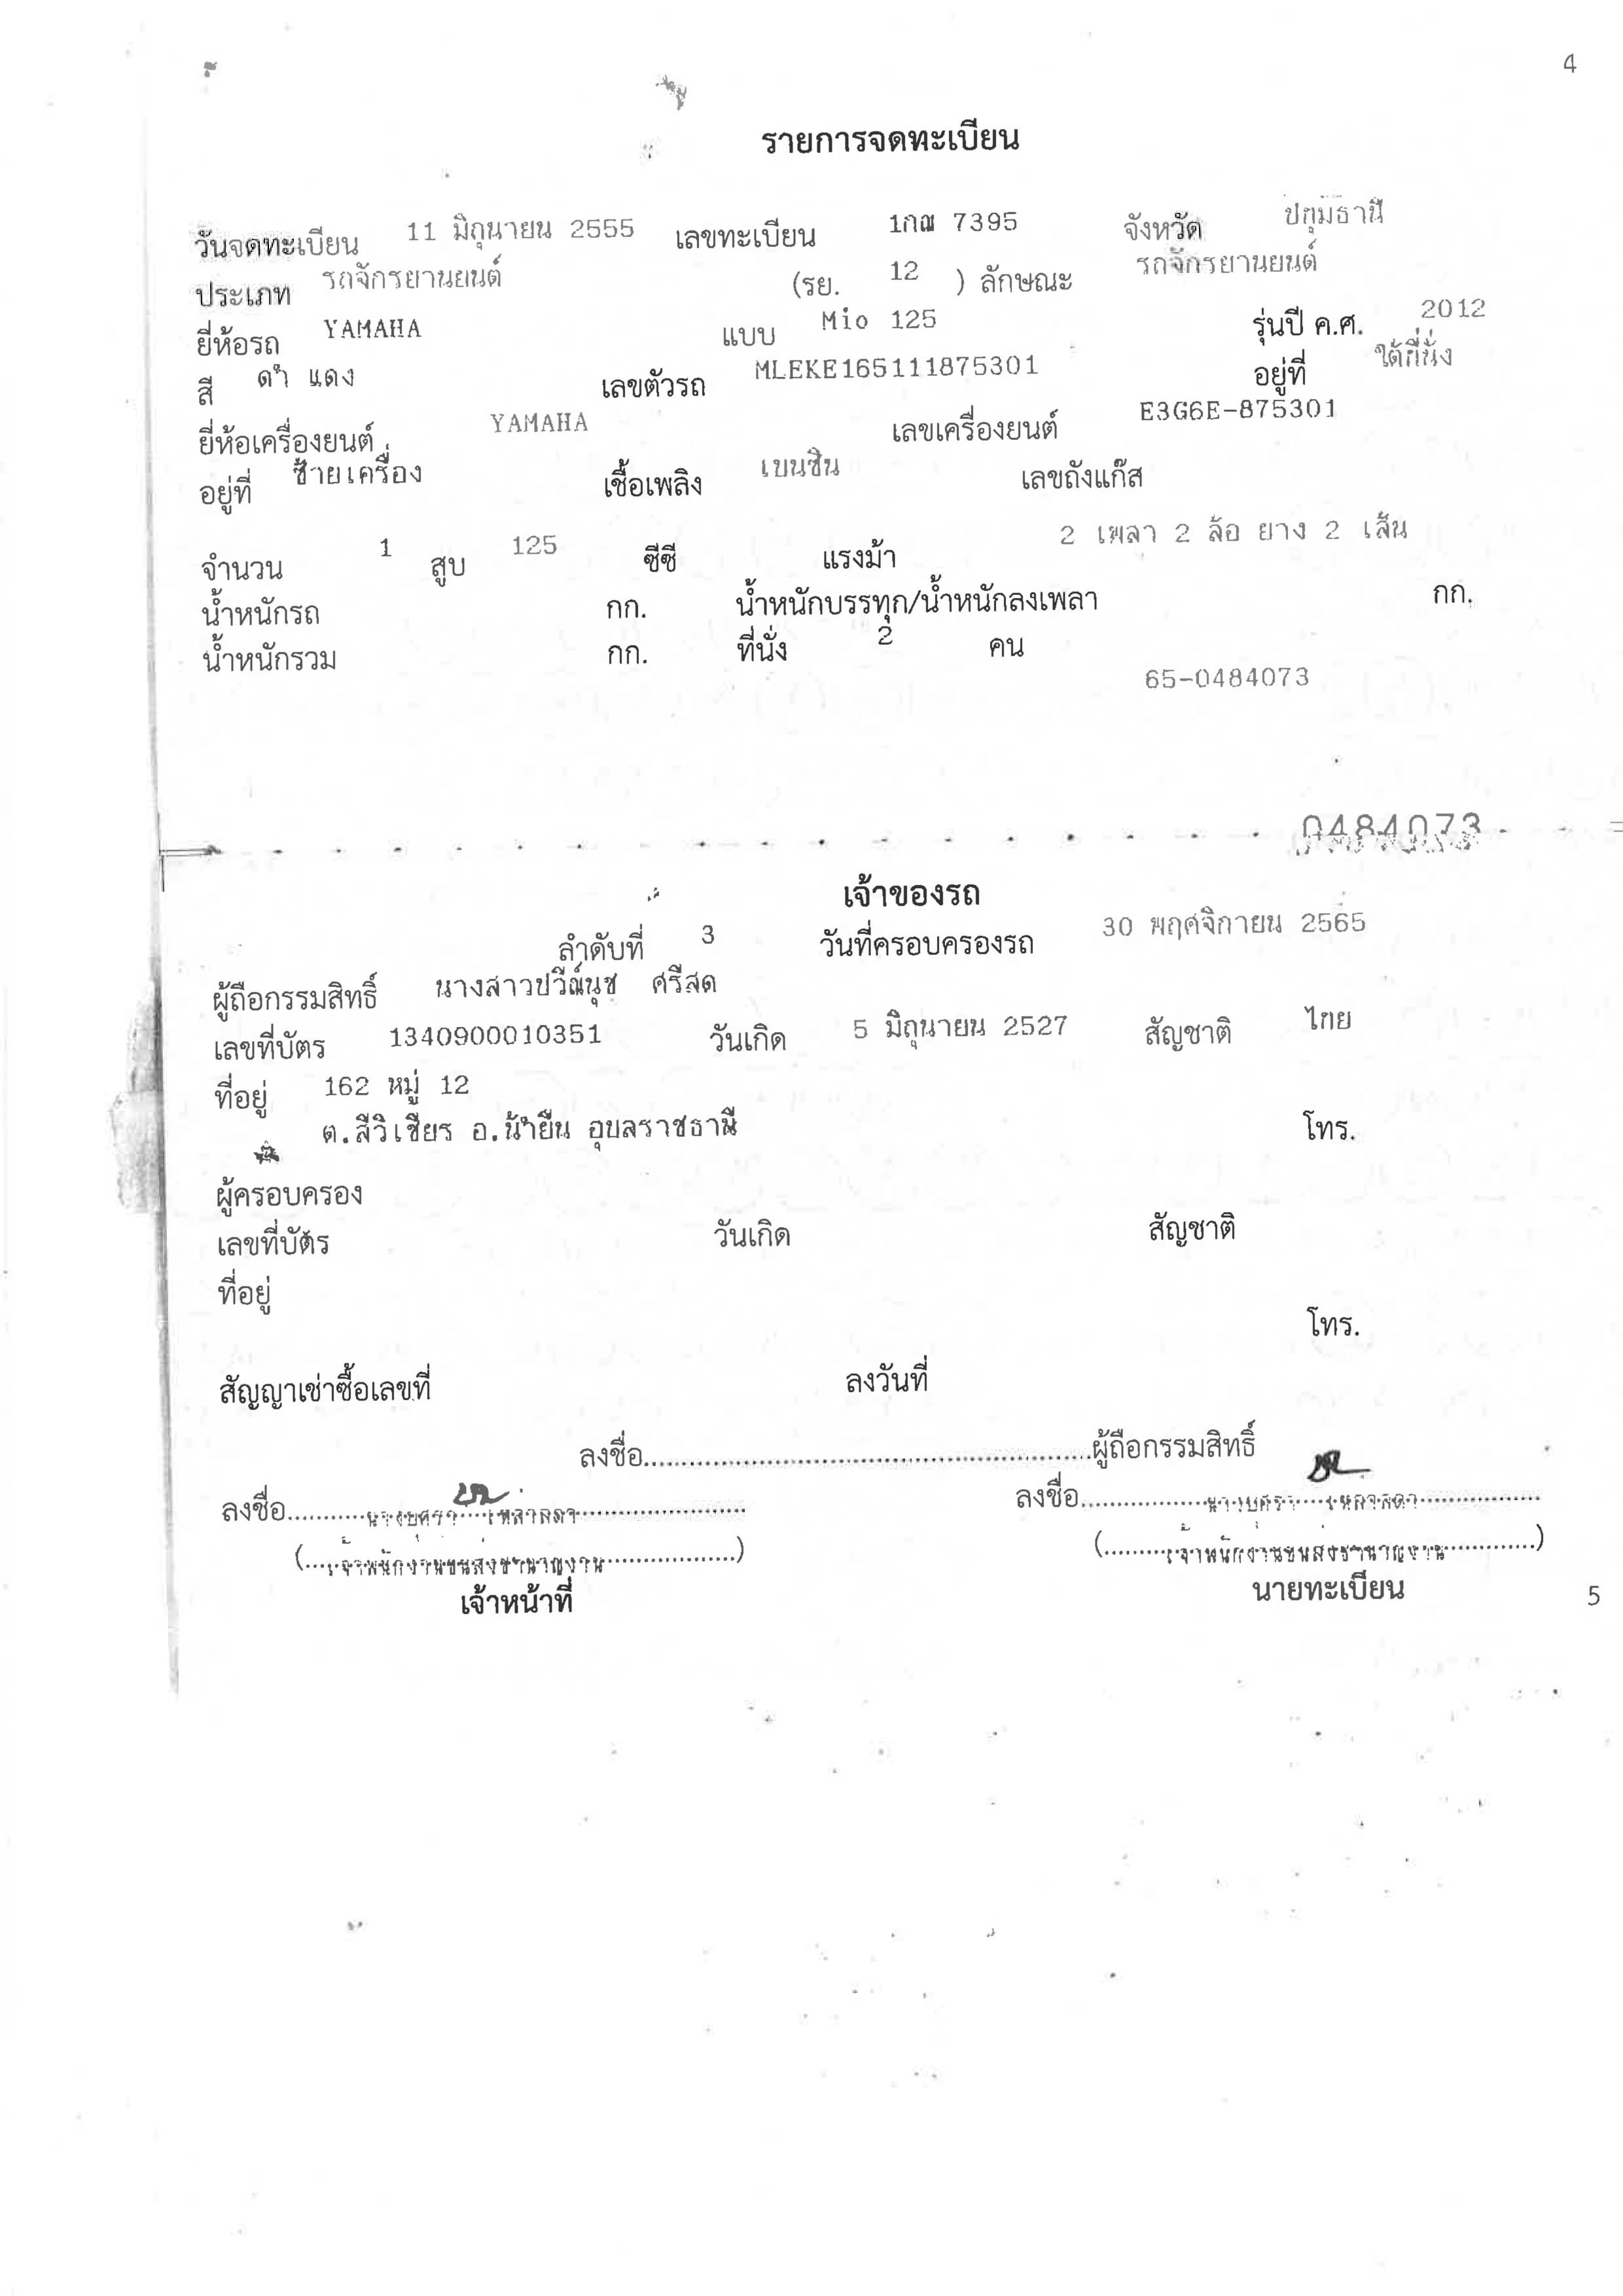 4
รายการจดทะเบียน
วันจดทะเบียน 11 มิถุนายน 2555 เลขทะเบียน 1กณ 7395 จังหวัด ปทุมธานี
ประเภท รถจักรยานยนต์ (รย. 12 ) ลักษณะ รถจักรยานยนต์
ยี่ห้อรถ YAMAHA แบบ Mio 125 รุ่นปี ค.ศ. 2012
สี ดำ แดง เลขตัวรถ MLEKE165111875301 อยู่ที่ ใต้ที่นั่ง
ยี่ห้อเครื่องยนต์ YAMAHA เลขเครื่องยนต์ E3G6E-875301
อยู่ที่ ซ้ายเครื่อง เชื้อเพลิง เบนซิน เลขถังแก๊ส
จำนวน 1 สูบ 125 ซีซี แรงม้า 2 เพลา 2 ล้อ ยาง 2 เส้น
น้ำหนักรถ กก. น้ำหนักบรรทุก/น้ำหนักลงเพลา กก.
น้ำหนักรวม กก. ที่นั่ง 2 คน
65-0484073
0484073
เจ้าของรถ
ลำดับที่ 3 วันที่ครอบครองรถ 30 พฤศจิกายน 2565
ผู้ถือกรรมสิทธิ์ นางสาวปวีณ์นุช ศรีสด
เลขที่บัตร 1340900010351 วันเกิด 5 มิถุนายน 2527 สัญชาติ ไทย
ที่อยู่ 162 หมู่ 12
ต.สีวิเชียร อ.น้ำยืน อุบลราชธานี โทร.
ผู้ครอบครอง
เลขที่บัตร วันเกิด สัญชาติ
ที่อยู่
โทร.
สัญญาเช่าซื้อเลขที่ ลงวันที่
ลงชื่อ ผู้ถือกรรมสิทธิ์
ลงชื่อ ลงชื่อ
(เจ้าพนักงานขนส่งชำนาญงาน) (เจ้าพนักงานขนส่งชำนาญงาน)
เจ้าหน้าที่ นายทะเบียน
5